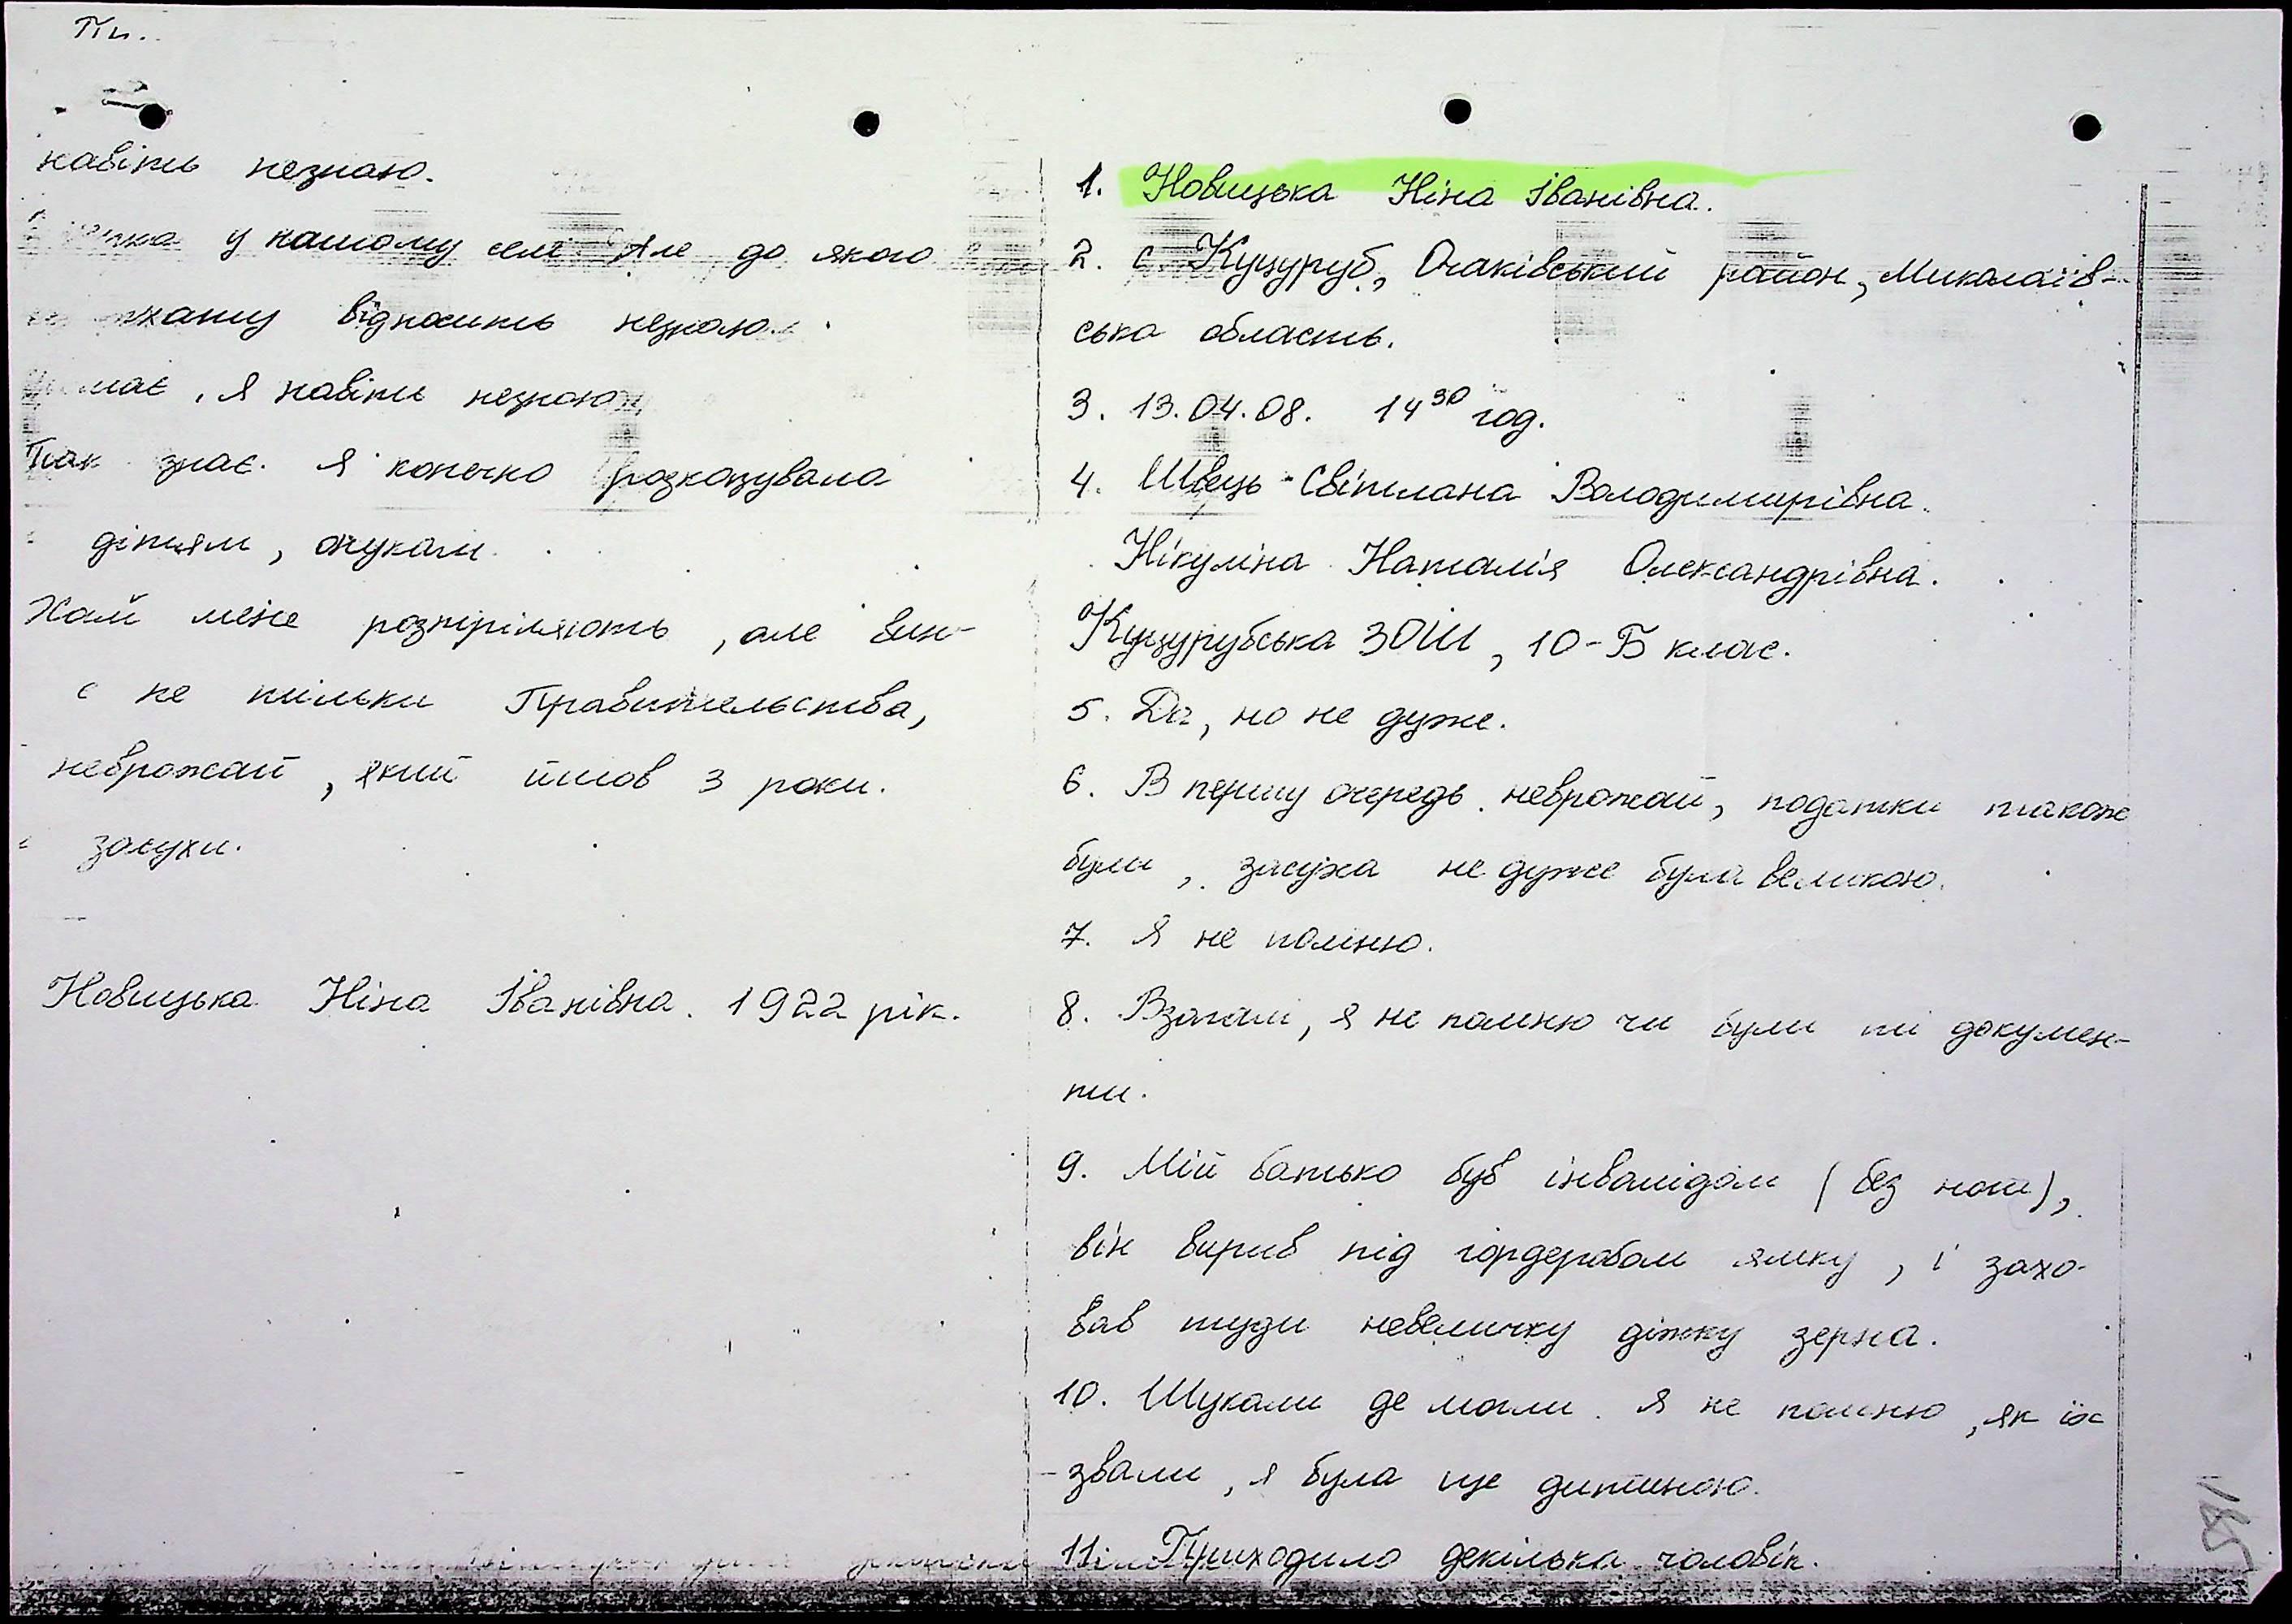 Пи.
навіть незнаю.
у нашому селі. Але до якого
відносить незнаю.
має, я навіть незнаю
Так знає. Я конечно розказувала
дітям, онукам.
Хай мене розтріляють, але вин-
не тільки Правительства,
неврожай, який йшов 3 роки.
засухи.
Новицька Ніна Іванівна. 1922 рік.
1. Новицька Ніна Іванівна.
2. с. Куцуруб, Очаківський район, Миколаїв-
ська область.
3. 13.04.08. 14 30 год.
4. Швець Світлана Володимирівна.
Нікуліна Наталія Олександрівна.
Куцурубська ЗОШ, 10-Б клас.
5. Да, но не дуже.
6. В першу очередь неврожай, податки також
були, засуха не дуже була великою.
7. Я не помню.
8. Взагалі, я не помню чи були ті докумен-
ти.
9. Мій батько був інвалідом (без ноги),
він вирив під гордеробом ямку, і захо-
вав туди невеличку діжку зерна.
10. Шукали де могли. Я не помню, як їх
звали, я була ще дитиною.
11. Приходило декілька чоловік.
185